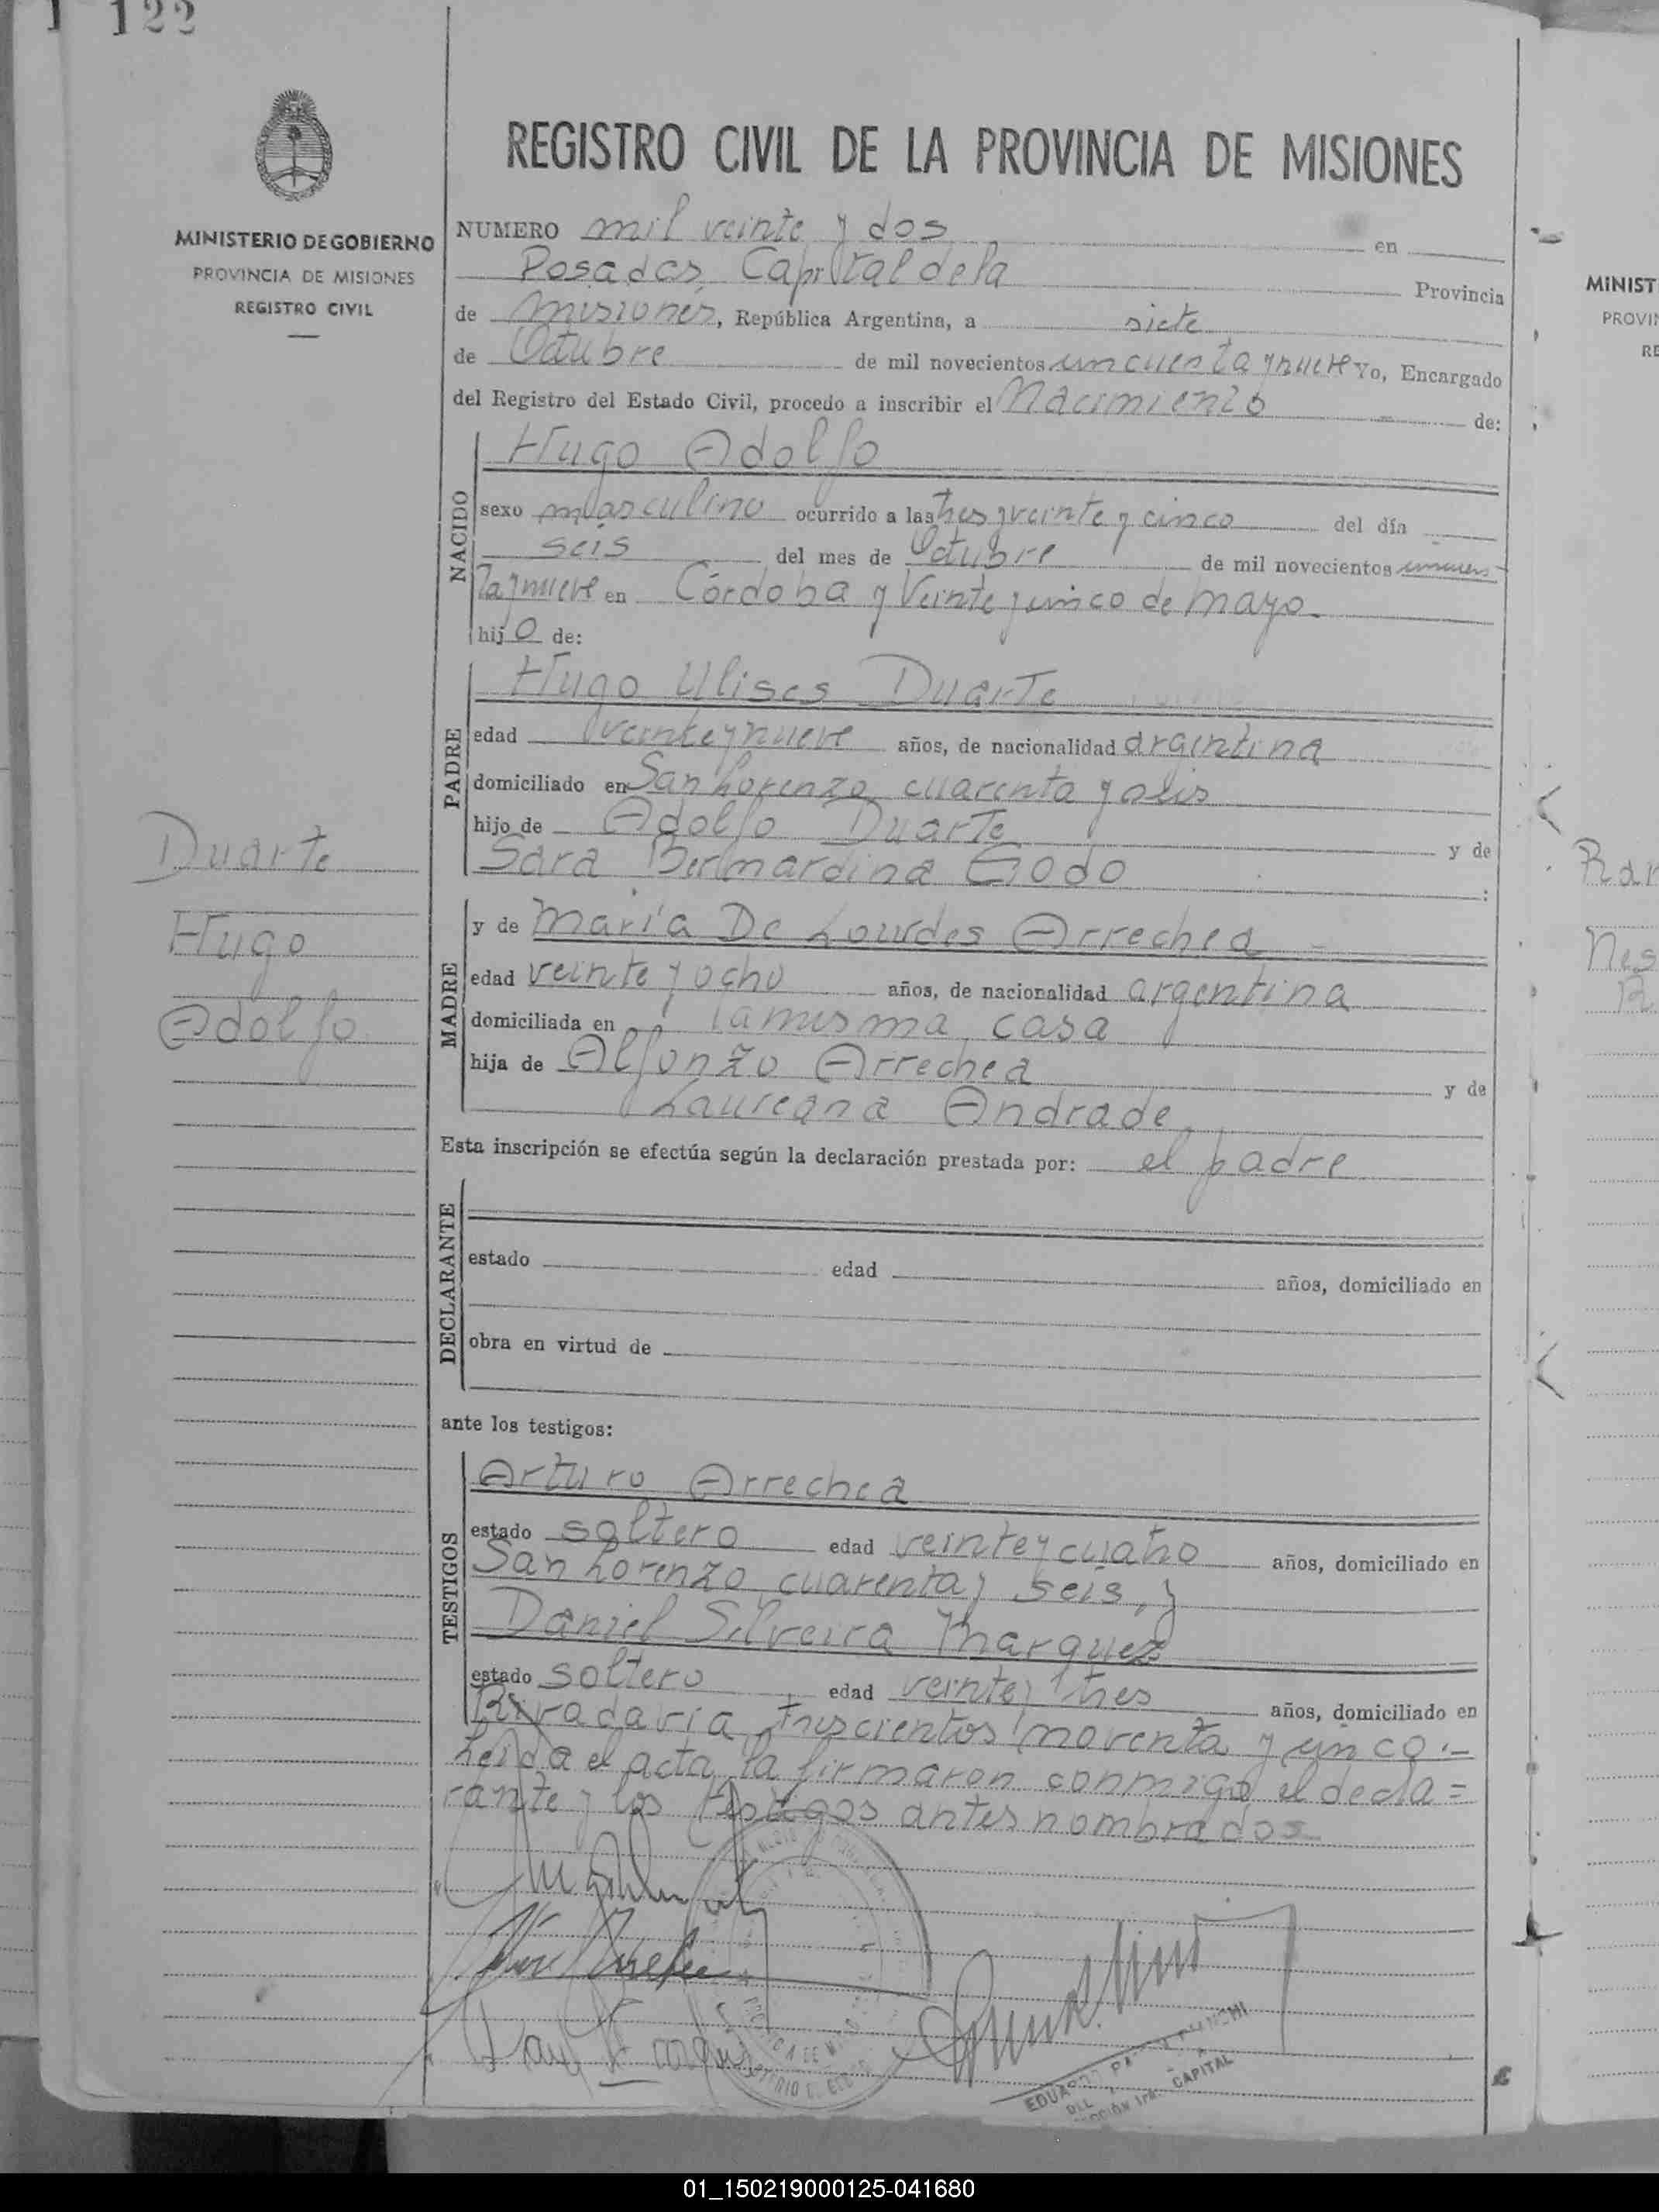 1 122
REGISTRO CIVIL DE LA PROVINCIA DE MISIONES
MINISTERIO DE GOBIERNO
PROVINCIA DE MISIONES
REGISTRO CIVIL
NUMERO mil veinte y dos en
Posadas, Capital de la Provincia
de Misiones, República Argentina, a siete
de Octubre de mil novecientos cincuenta y nueve Yo, Encargado
del Registro del Estado Civil, procedo a inscribir el Nacimiento de:
NACIDO
Hugo Adolfo
sexo masculino ocurrido a las tres y veinte y cinco del día
seis del mes de Octubre de mil novecientos cincuen-
ta y nueve en Córdoba y Veinte y cinco de mayo
hijo de:
PADRE
Hugo Ulises Duarte
edad veinte y nueve años, de nacionalidad argentina
domiciliado en San Lorenzo cuarenta y seis
hijo de Adolfo Duarte y de
Sara Bernardina Godo :
Duarte
Hugo
Adolfo
MADRE
y de María De Lourdes Arrechea
edad veinte y ocho años, de nacionalidad argentina
domiciliada en la misma casa
hija de Alfonzo Arrechea y de
Laureana Andrade
Esta inscripción se efectúa según la declaración prestada por: el padre
DECLARANTE
estado edad años, domiciliado en
obra en virtud de
ante los testigos:
TESTIGOS
Arturo Arrechea
estado soltero edad veinte y cuatro años, domiciliado en
San Lorenzo cuarenta y seis, y
Daniel Silveira Marquez
estado soltero edad veinte y tres años, domiciliado en
Rivadavia trescientos noventa y cinco.-
Leída el acta, la firmaron conmigo el decla=
rante y los testigos antes nombrados
EDUARDO
CAPITAL
MINIST
PROVIN
RE
Ran
Nes
R
01_150219000125-041680